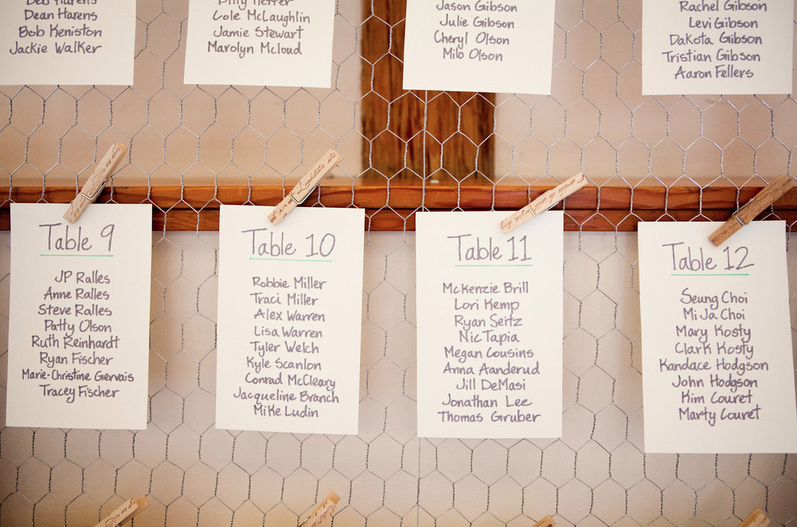 Dean Harens
Bob Keniston
Jackie Walker
Cole McLaughlin
Jamie Stewart
Marolyn Mcloud
Jason Gibson
Julie Gibson
Cheryl Olson
Milo Olson
Rachel Gibson
Levi Gibson
Dakota Gibson
Tristian Gibson
Aaron Fellers
Table 9
JP Ralles
Anne Ralles
Steve Ralles
Patty Olson
Ruth Reinhardt
Ryan Fischer
Marie-Christine Gervais
Tracey Fischer
Table 10
Robbie Miller
Traci Miller
Alex Warren
Lisa Warren
Tyler Welch
Kyle Scanlon
Conrad McCleary
Jacqueline Branch
Mike Ludin
Table 11
McKenzie Brill
Lori Kemp
Ryan Seitz
Nic Tapia
Megan Cousins
Anna Aanderud
Jill DeMasi
Jonathan Lee
Thomas Gruber
Table 12
Seung Choi
Mi Ja Choi
Mary Kosty
Clark Kosty
Kandace Hodgson
John Hodgson
Kim Couret
Marty Couret